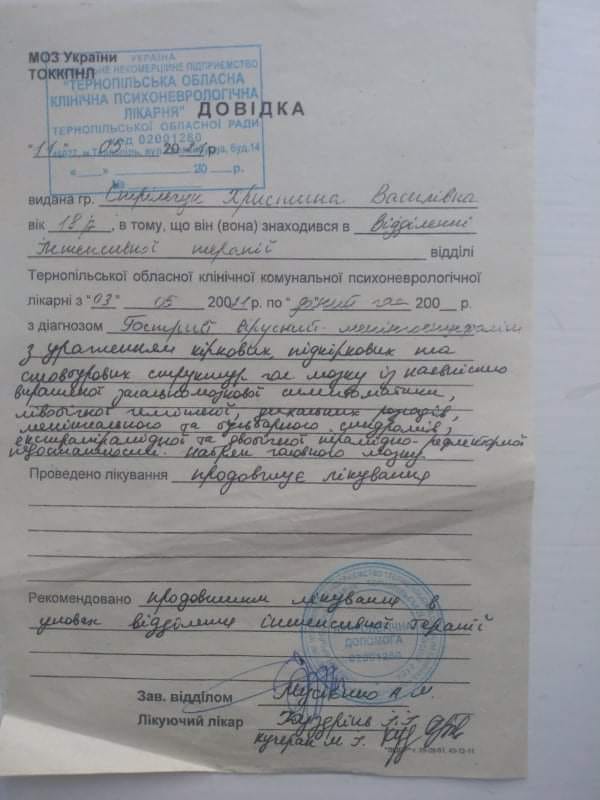 МОЗ України
ТОККПНЛ
УКРАЇНА
НЕКОМЕРЦІЙНЕ ПІДПРИЄМСТВО
"ТЕРНОПІЛЬСЬКА ОБЛАСНА
КЛІНІЧНА ПСИХОНЕВРОЛОГІЧНА
ЛІКАРНЯ"
ТЕРНОПІЛЬСЬКОЇ ОБЛАСНОЇ РАДИ
КОД 02001280
ДОВІДКА
"11" 05 2021 р.
"___" ______ 20__ р.
№
видана гр. Стрільчук Христина Василівна
вік 18 р, в тому, що він (вона) знаходився в відділенні
інтенсивної терапії відділі
Тернопільської обласної клінічної комунальної психоневрологічної
лікарні з "03" 05 р. по "даний час 200__ р.
з діагнозом Гострий вірусний менінгоенцефаліт
з ураженням кіркових, підкіркових та
стовбурових структур гол мозку із наявністю
вираженої загальномозкової симптоматики,
лівобічної геміплегії, дихальних розладів,
менінгіального та бульбарного синдромів,
екстрапірамідної та двобічної пірамідно-рефлекторної
недостатності. Набряк головного мозку.
Проведено лікування продовжує лікування
Рекомендовано продовження лікування в
умовах відділення інтенсивної терапії
ДОПОМОГА
02001280
Зав. відділом
Лікуючий лікар